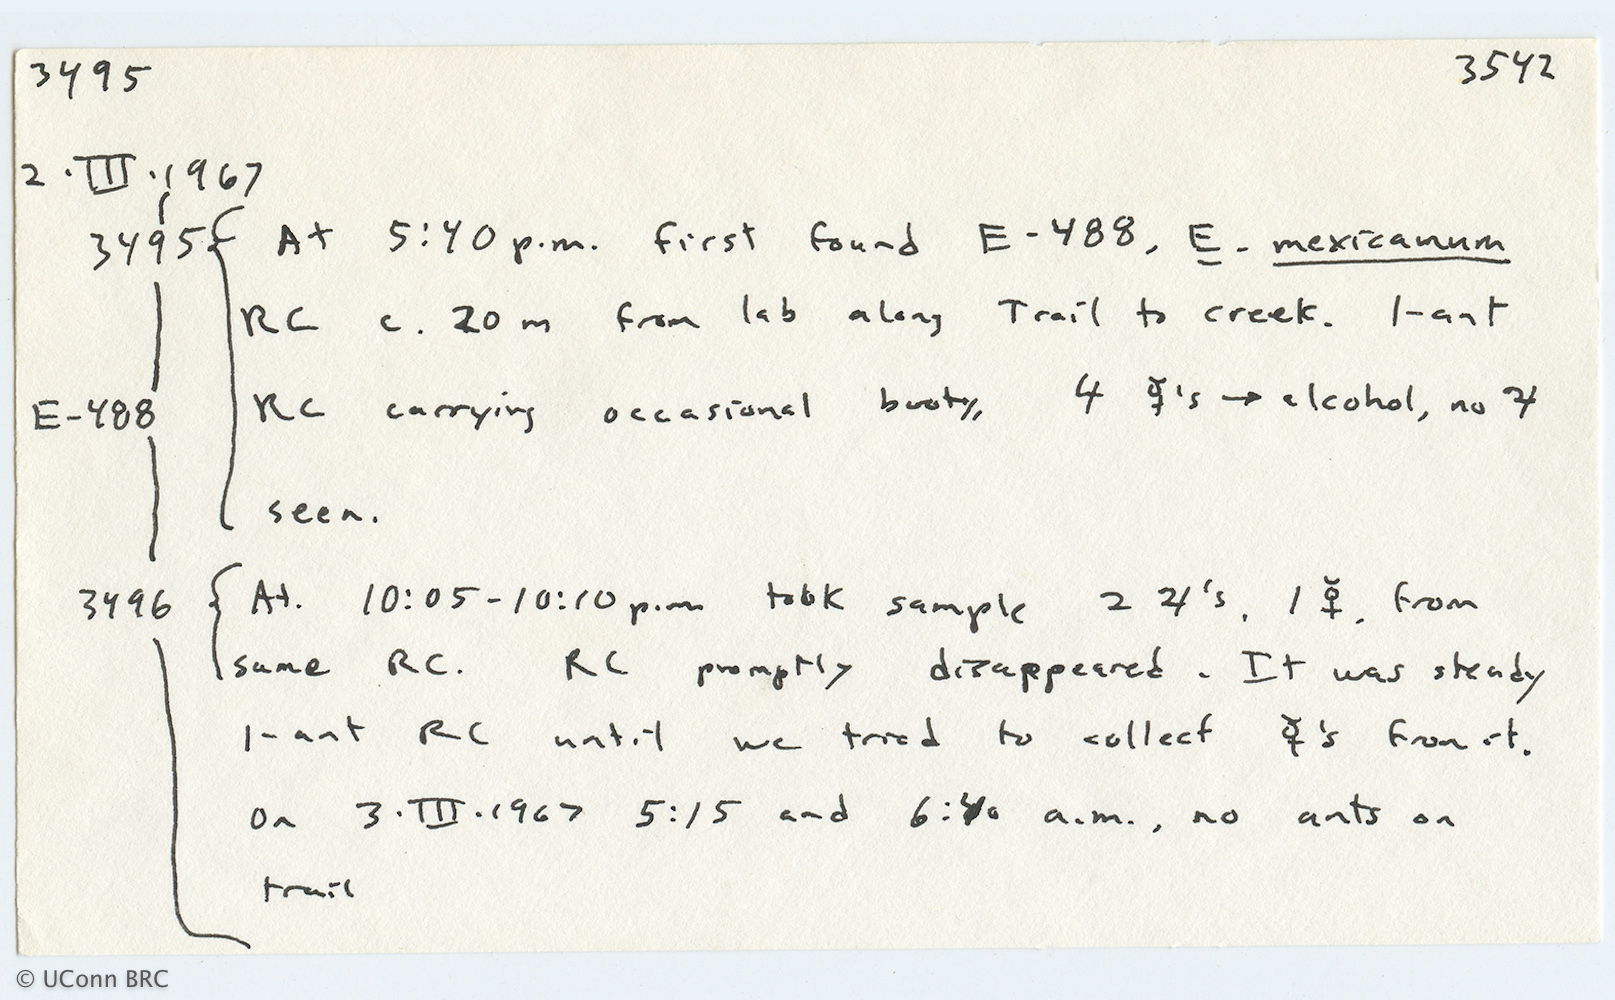 3495 3542
2·III·1967
3495 { At 5:40 p.m. first found E-488, E. mexicanum
RC c. 20 m from lab along Trail to creek. 1-ant
E-488 RC carrying occasional booty, 4 ☿'s → alcohol, no ♃
seen.
3496 { At. 10:05-10:10 p.m. took sample 2 ♃'s, 1 ☿, from
same RC. RC promptly disappeared. It was steady
1-ant RC until we tried to collect ☿'s from it.
On 3·III·1967 5:15 and 6:40 a.m., no ants on
trail
© UConn BRC